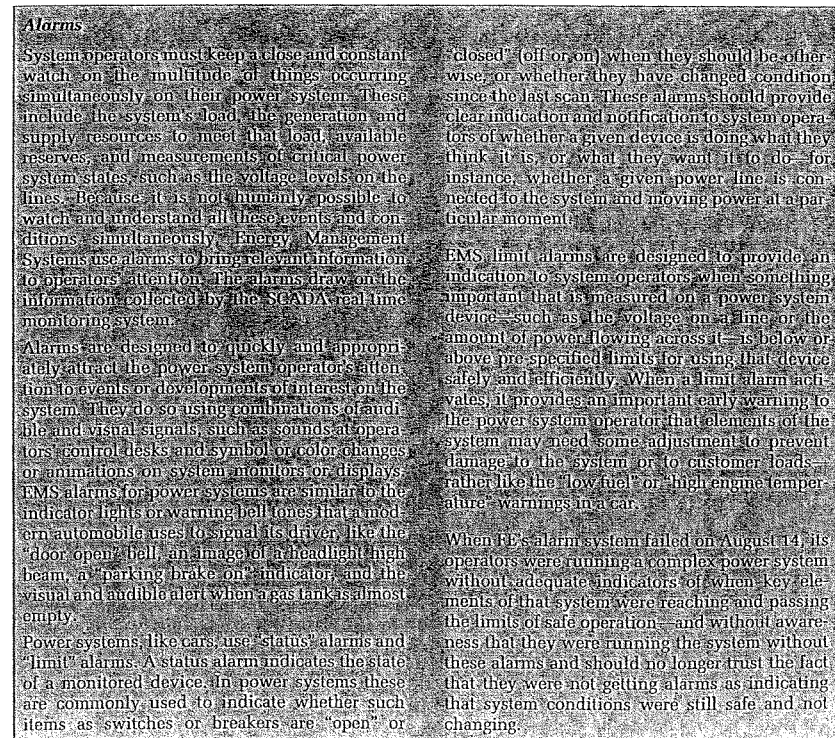 Alarms
System operators must keep a close and constant
watch on the multitude of things occurring
simultaneously on their power system. These
include the system's load, the generation and
supply resources to meet that load, available
reserves, and measurements of critical power
system states, such as the voltage levels on the
lines. Because it is not humanly possible to
watch and understand all these events and con-
ditions simultaneously, Energy Management
Systems use alarms to bring relevant information
to operators' attention. The alarms draw on the
information collected by the SCADA real-time
monitoring system.
Alarms are designed to quickly and appropri-
ately attract the power system operator's atten-
tion to events or developments of interest on the
system. They do so using combinations of audi-
ble and visual signals, such as sounds at opera-
tors' control desks and symbol or color changes
or animations on system monitors or displays.
EMS alarms for power systems are similar to the
indicator lights or warning bell tones that a mod-
ern automobile uses to signal its driver, like the
"door open" bell, an image of a headlight high
beam, a "parking brake on" indicator, and the
visual and audible alert when a gas tank is almost
empty.
Power systems, like cars, use "status" alarms and
"limit" alarms. A status alarm indicates the state
of a monitored device. In power systems these
are commonly used to indicate whether such
items as switches or breakers are "open" or
"closed" (off or on) when they should be other-
wise, or whether they have changed condition
since the last scan. These alarms should provide
clear indication and notification to system opera-
tors of whether a given device is doing what they
think it is, or what they want it to do—for
instance, whether a given power line is con-
nected to the system and moving power at a par-
ticular moment.
EMS limit alarms are designed to provide an
indication to system operators when something
important that is measured on a power system
device—such as the voltage on a line or the
amount of power flowing across it—is below or
above pre-specified limits for using that device
safely and efficiently. When a limit alarm acti-
vates, it provides an important early warning to
the power system operator that elements of the
system may need some adjustment to prevent
damage to the system or to customer loads—
rather like the "low fuel" or "high engine temper-
ature" warnings in a car.
When FE's alarm system failed on August 14, its
operators were running a complex power system
without adequate indicators of when key ele-
ments of that system were reaching and passing
the limits of safe operation—and without aware-
ness that they were running the system without
these alarms and should no longer trust the fact
that they were not getting alarms as indicating
that system conditions were still safe and not
changing.